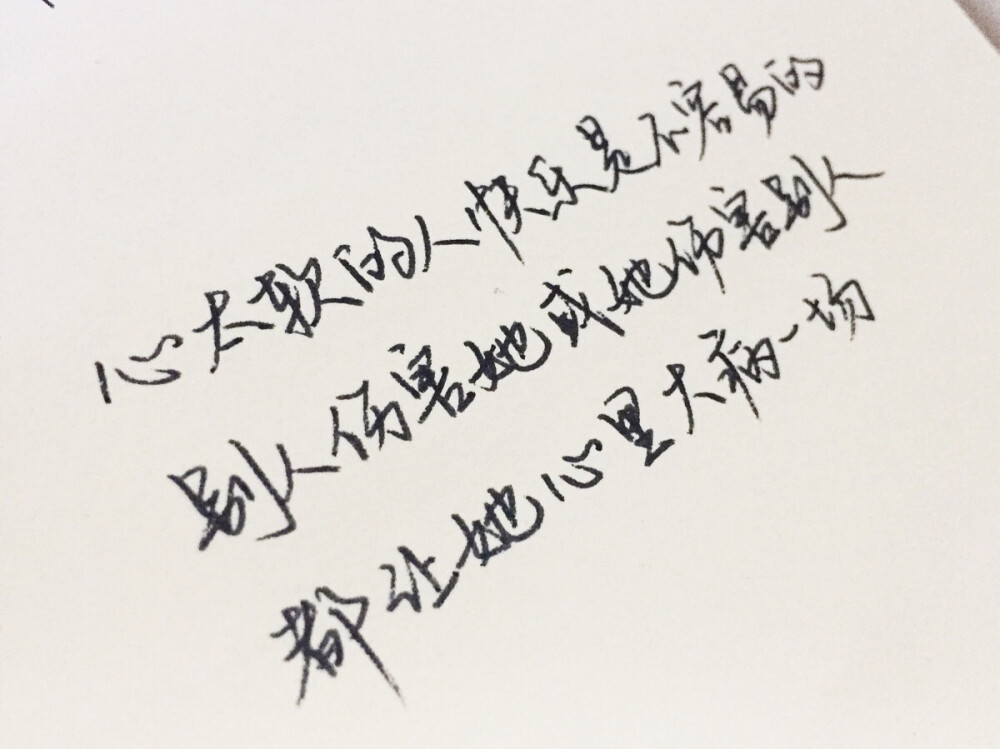 心太软的人快乐是不容易的
别人伤害她或她伤害别人
都让她心里大病一场